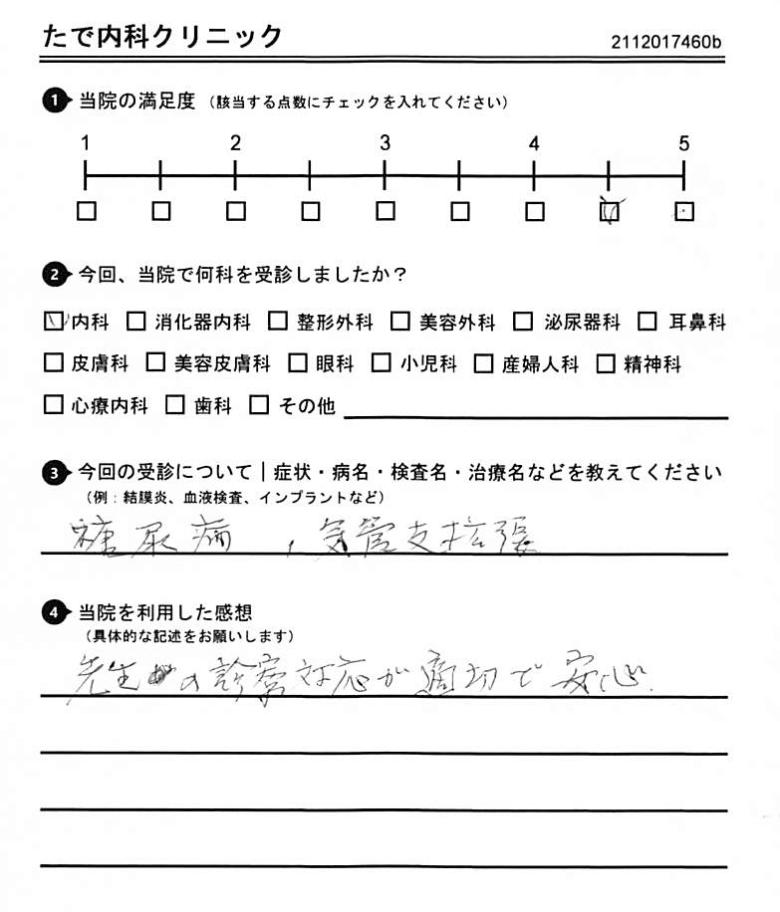 たで内科クリニック 2112017460b
1 当院の満足度 (該当する点数にチェックを入れてください)
1 2 3 4 5
2 今回、当院で何科を受診しましたか?
内科 消化器内科 整形外科 美容外科 泌尿器科 耳鼻科
皮膚科 美容皮膚科 眼科 小児科 産婦人科 精神科
心療内科 歯科 その他
3 今回の受診について|症状・病名・検査名・治療名などを教えてください
(例:結膜炎、血液検査、インプラントなど)
糖尿病 , 気管支拡張
4 当院を利用した感想
(具体的な記述をお願いします)
先生の診察対応が適切で安心.